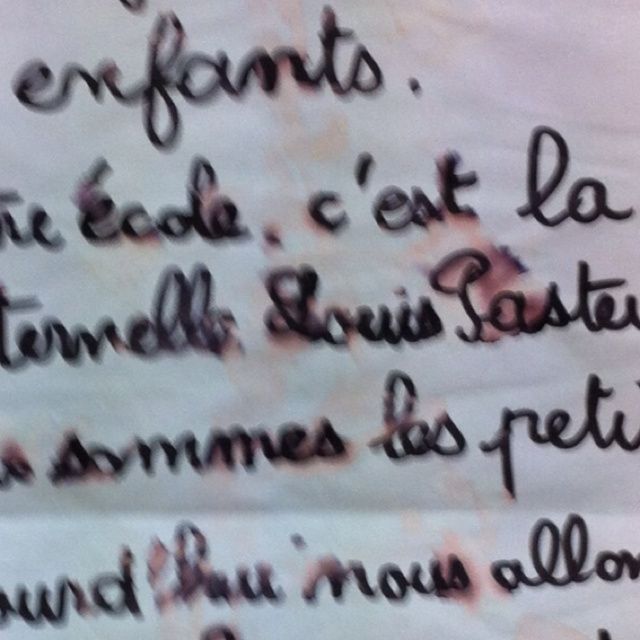 enfants.
école, c'est la
ternelle Louis Pasteu
sommes les petit
ourd'hui nous allon